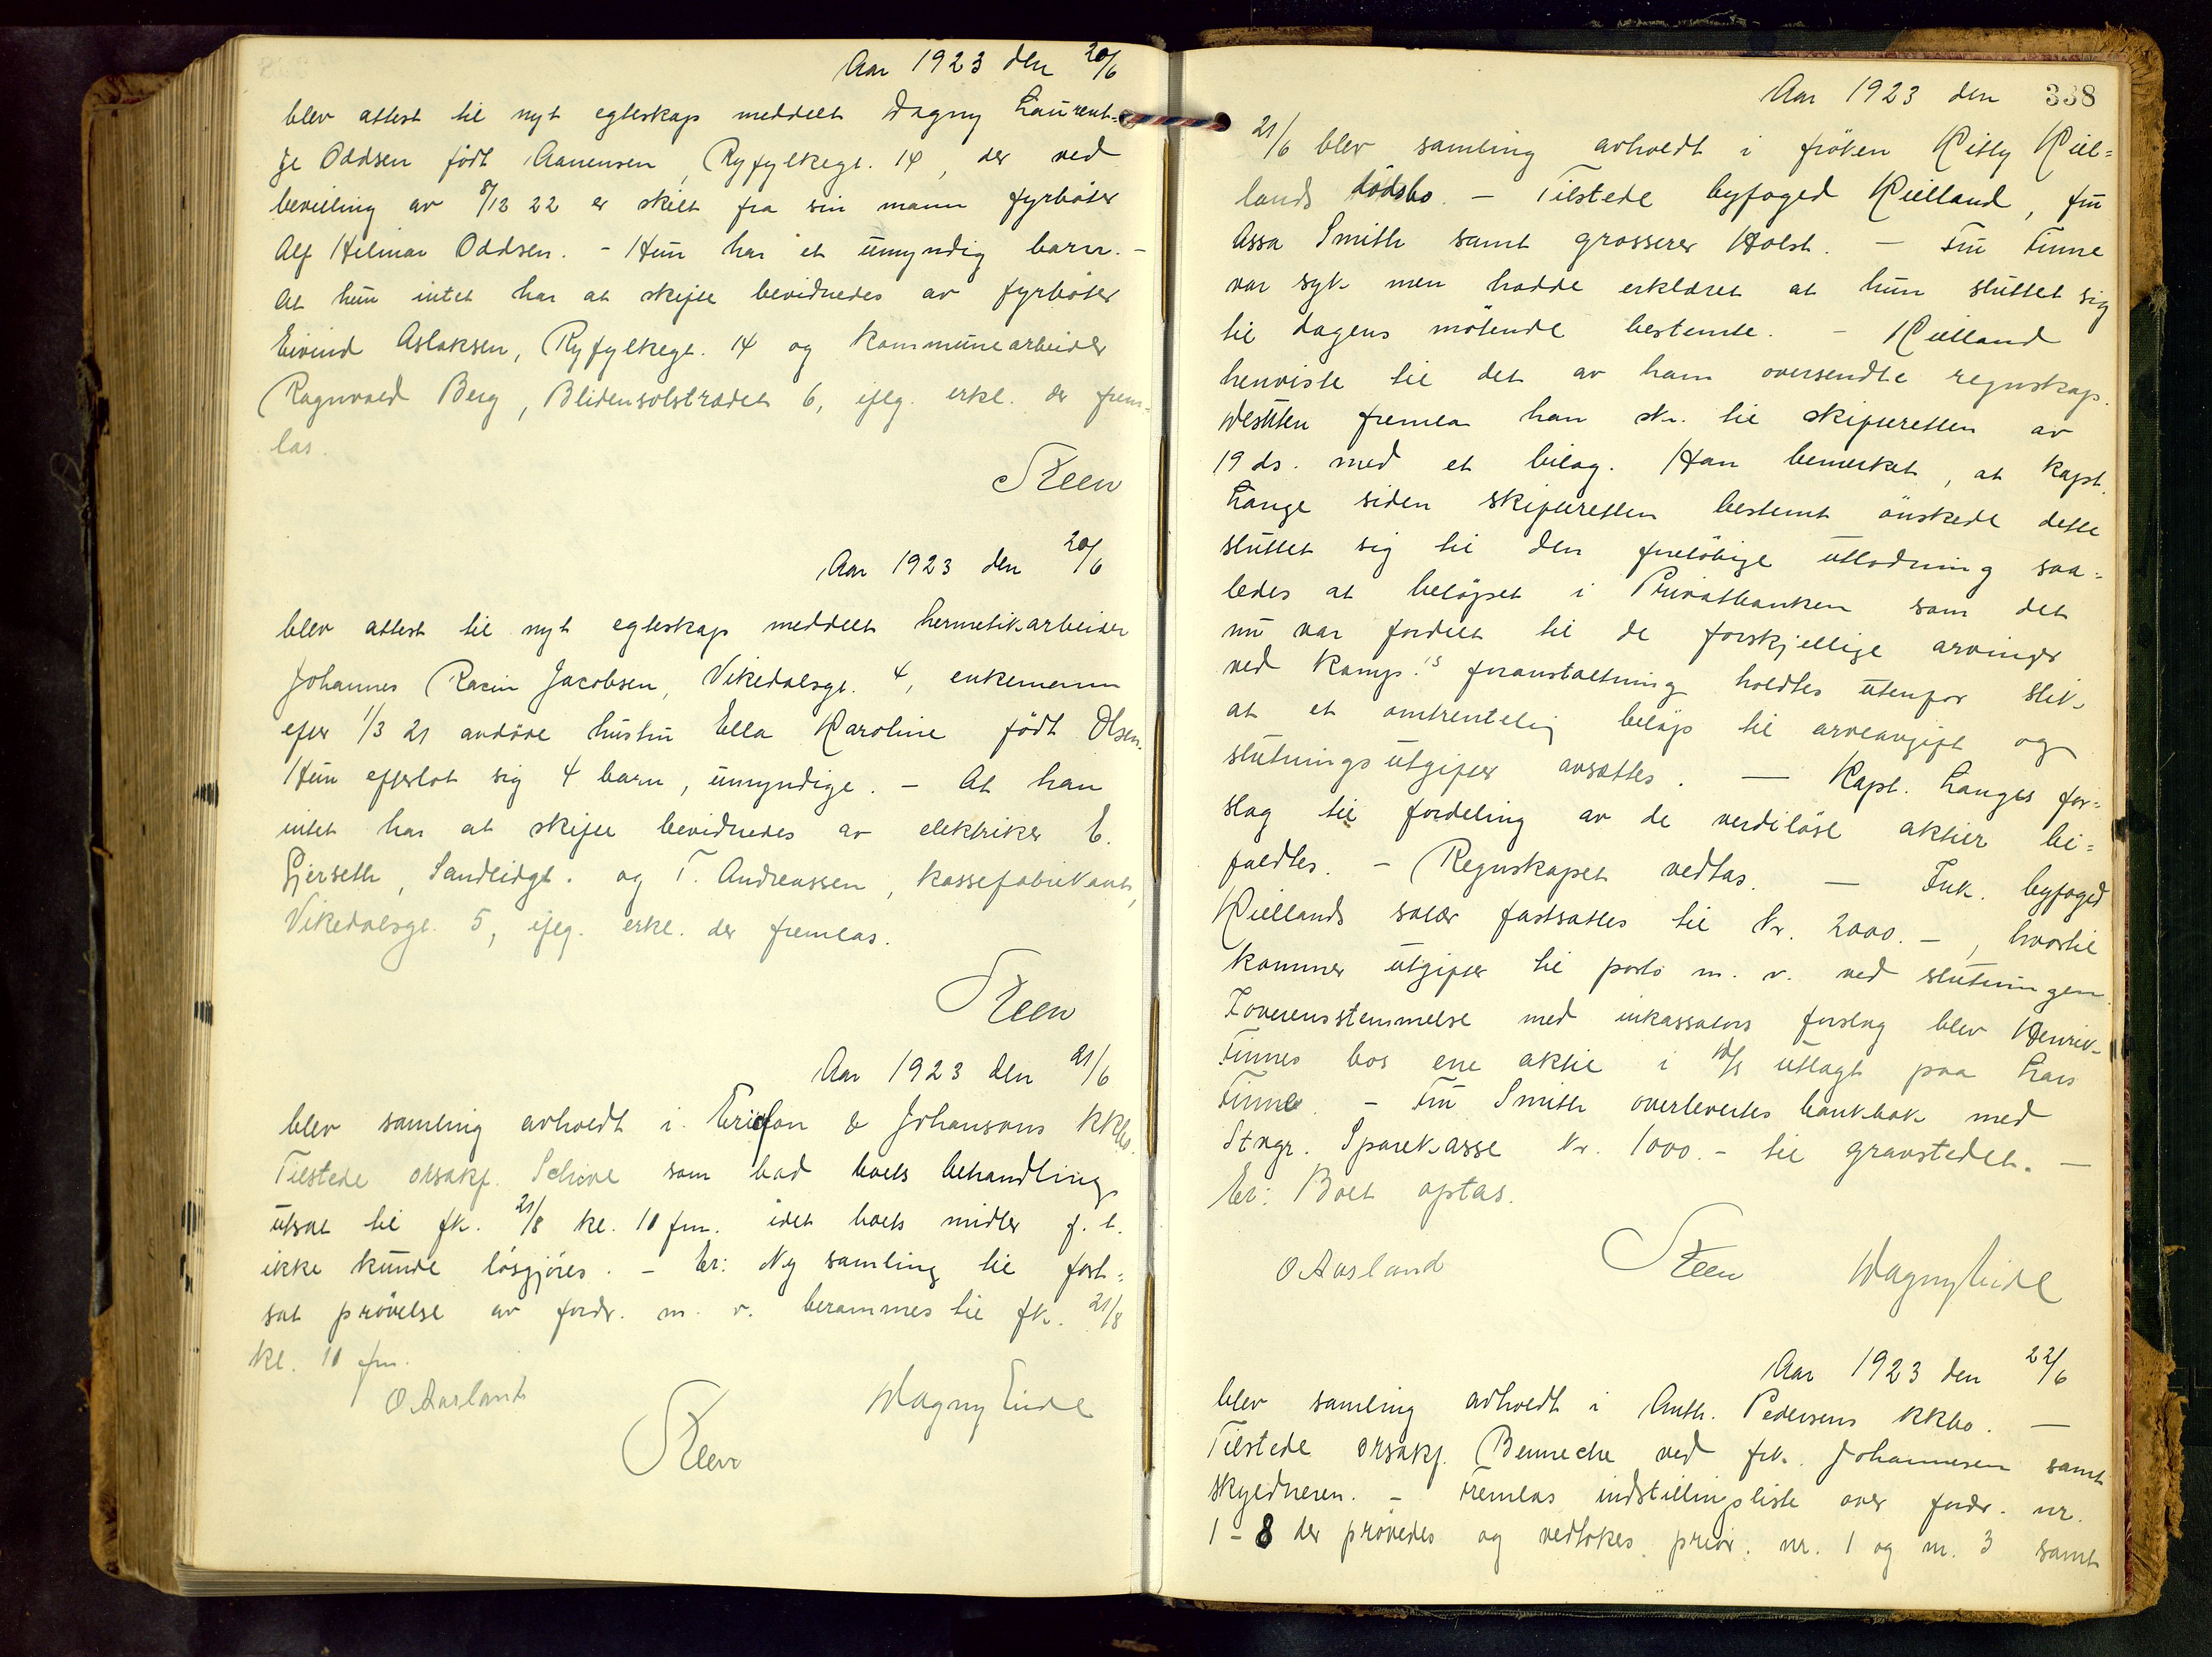 Aar 1923 den 20/6
blev attest til nyt egteskap meddelt Dagny Laurent=
ze Oddsen født Aanensen, Ryfylkegt. 14, der ved
bevilling av 8/12 22 er skilt fra sin mann fyrbøter
Alf Hilmar Oddsen. - Hun har et umyndig barn. -
At hun intet har at skifte bevidnedes av fyrbøter
Eivind Aslaksen, Ryfylkegt. 14 og kommunearbeider
Ragnvald Berg, Blidensolstrædet 6, iflg. erkl. der frem=
las.
Steen
Aar 1923 den 20/6
blev attest til nyt egteskap meddelt hermetikarbeider
Johannes Racin Jacobsen, Vikedalsgt. 4, enkemann
efter 1/3 21 avdøde hustru Ella Karoline født Olsen.
Hun efterlot sig 4 barn, umyndige. - At han
intet har at skifte bevidnedes av elektriker E.
Gjerseth, Sandeidgt. og T. Andreassen, kassefabrikant,
Vikedalsgt. 5, iflg. erkl. der fremlas.
Steen
Aar 1923 den 21/6
blev samling avholdt i Ericson & Johansons kkbo.
Tilstede orsakf. Schive som bad boets behandling
utsat til fk. 21/8 kl. 10 fm. idet boets midler f. t.
ikke kunde løsgjøres. - Er: Ny samling til fort=
sat prøvelse av fordr. m. v. berammes til fk. 21/8
kl. 10 fm.
O Aasland
Steen
Magny Eide
338
Aar 1923 den
21/6 blev samling avholdt i frøken Kitty Kiel=
lands dødsbo. - Tilstede byfoged Kielland, fru
Assa Smith samt grosserer Holst. - Fru Finne
var syk men hadde erklæret at hun sluttet sig
til dagens møtende bestemte. - Kielland
henviste til det av ham oversendte regnskap.
fremla han skr. til skifteretten av
19 ds. med et bilag. Han bemerket, at kapt.
Lange siden skifteretten bestemt ønskede dette
sluttet sig til den foreløbige utlodning saa=
ledes at beløpet i Privatbanken som det
nu var fordelt til de forskjellige arvinger
ved Kamps foranstaltning holdtes utenfor slik
at et omtrentelig beløp til arveavgift og
slutningsutgifter avsattes. - Kapt. Langes for=
slag til fordeling av de verdiløse aktier bi=
faldtes. - Regnskapet vedtas. - Ink. byfoged
Kiellands salær fastsattes til kr. 2000.-, hvortil
kommer utgifter til porto m. v. ved slutningen.
I overensstemmelse med inkassators forslag blev Henrik
Finnes bos ene aktie i utlagt paa Lars
Finne. - Fru Smith overlevertes bankbok med
Stvgr. Sparekasse kr. 1000.- til gravstedet. -
Er: Boet optas.
O Aasland Steen Magny Eide
Aar 1923 den 22/6
blev samling avholdt i Anth. Pedersens kkbo. -
Tilstede orsakf. Benneche ved frk. Johannesen samt
skyldneren. - Fremlas indstillingsliste over fordr. nr.
1 - 8 der prøvedes og vedtokes prior. nr. 1 og nr. 3 samt